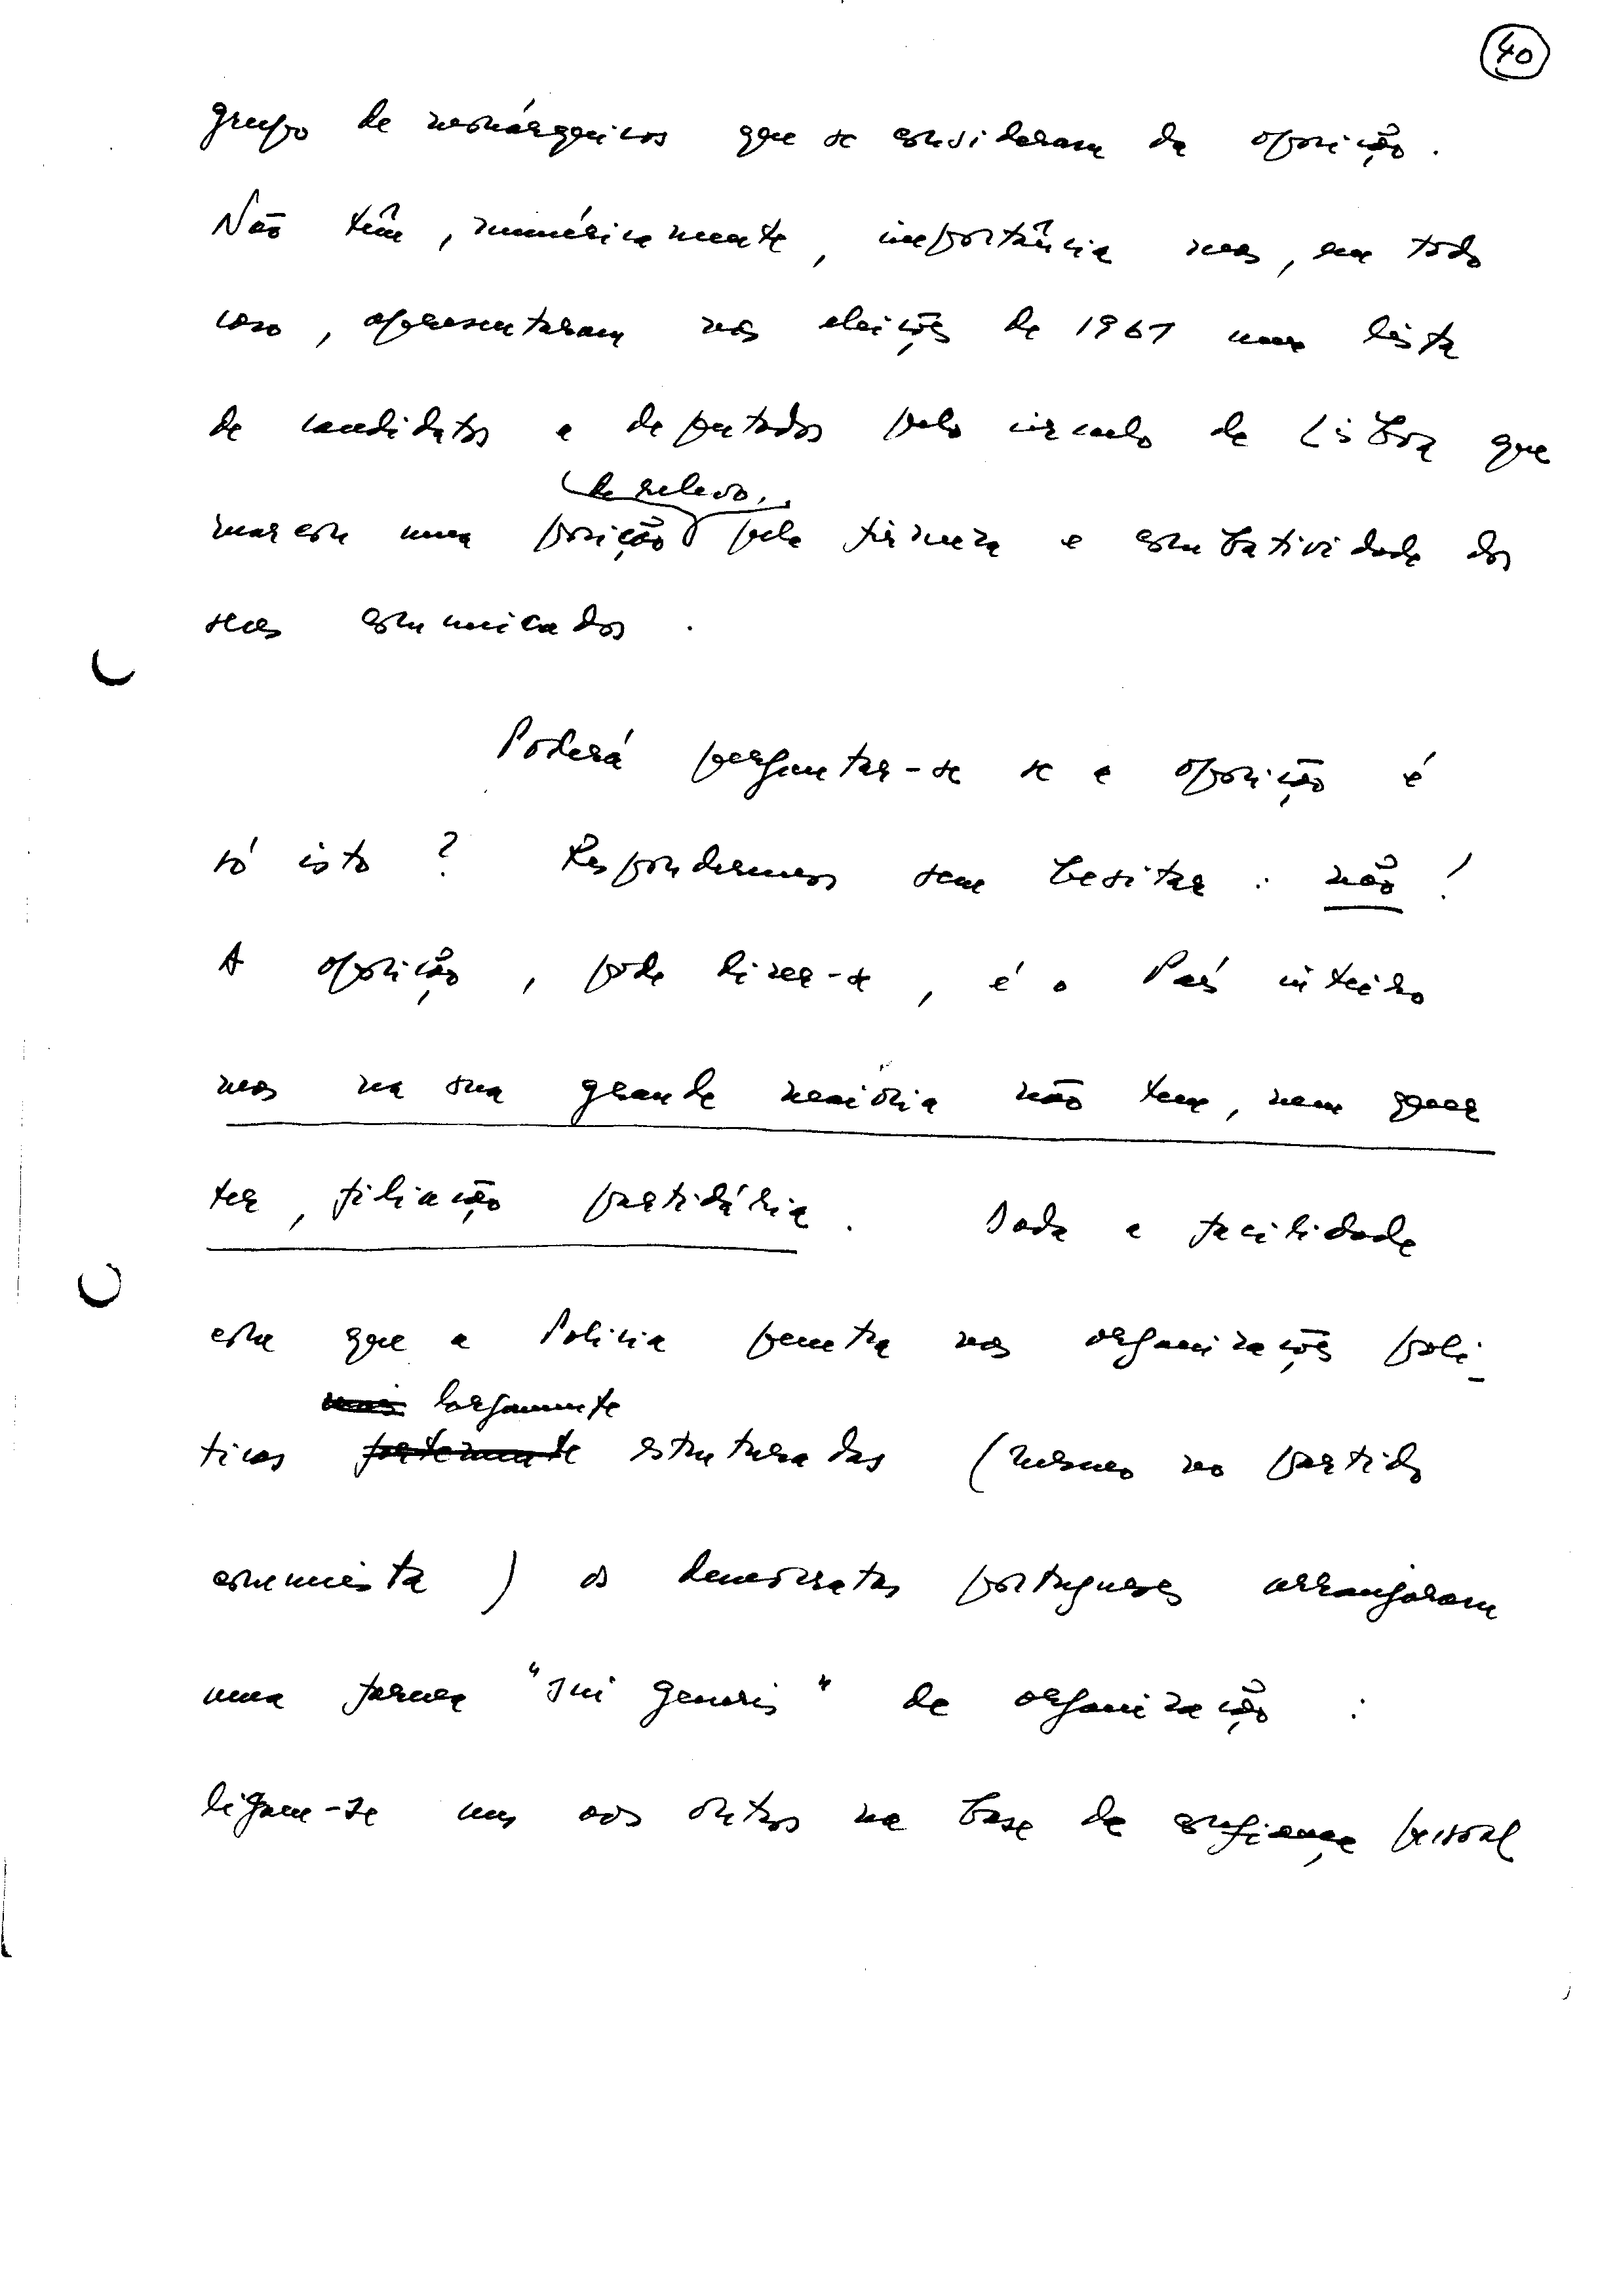 40
grupo de monárquicos que se consideram da oposição.
Não têm, numéricamente, importância mas, em todo
caso, apresentaram nas eleições de 1961 uma lista
de candidatos a deputados pelo circulo de Lisboa que
de relevo
marcou uma posição pela firmeza e combatividade dos
seus comunicados.
Poderá perguntar-se se a oposição é
só isto? Responderemos sem hesitar: não!
A oposição, pode dizer-se, é o País inteiro
mas na sua grande maióría não tem, nem quer
ter, filiação partidária. Dada a facilidade
com que a Policia penetra nas organizações polí-
largamente
ticas fortemente estruturadas (mesmo no partido
comunista) os democratas portugueses arranjaram
uma forma "sui generis" de organização:
ligam-se uns aos outros na base da confiança pessoal